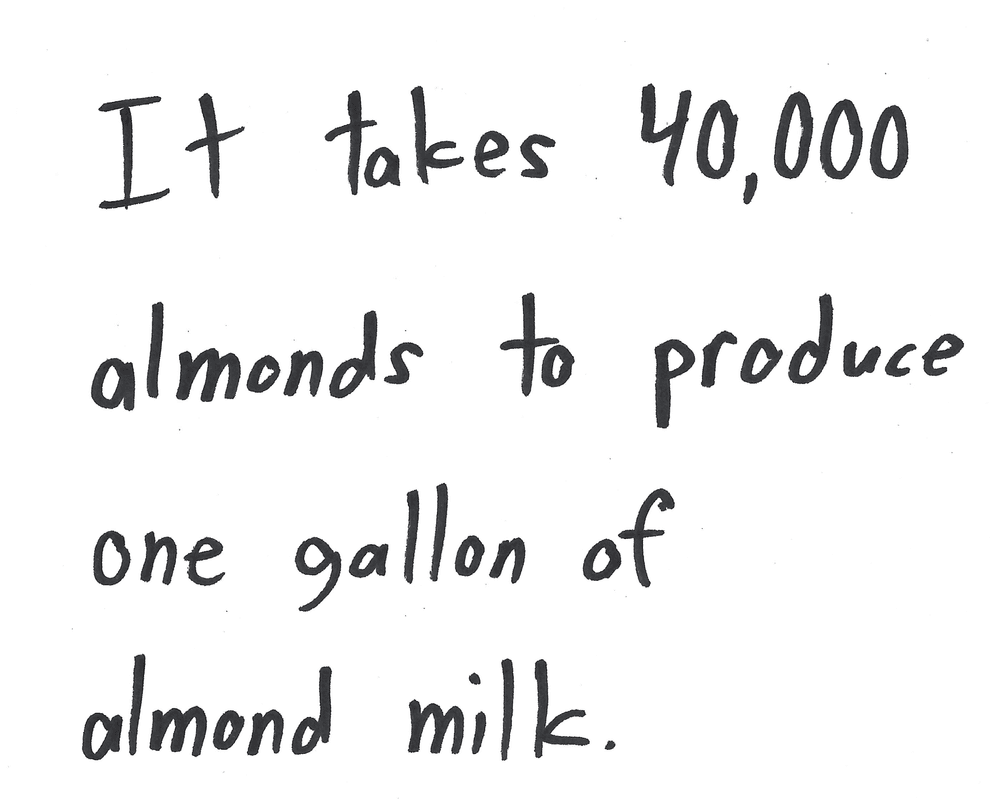 It takes 40,000
almonds to produce
one gallon of
almond milk.